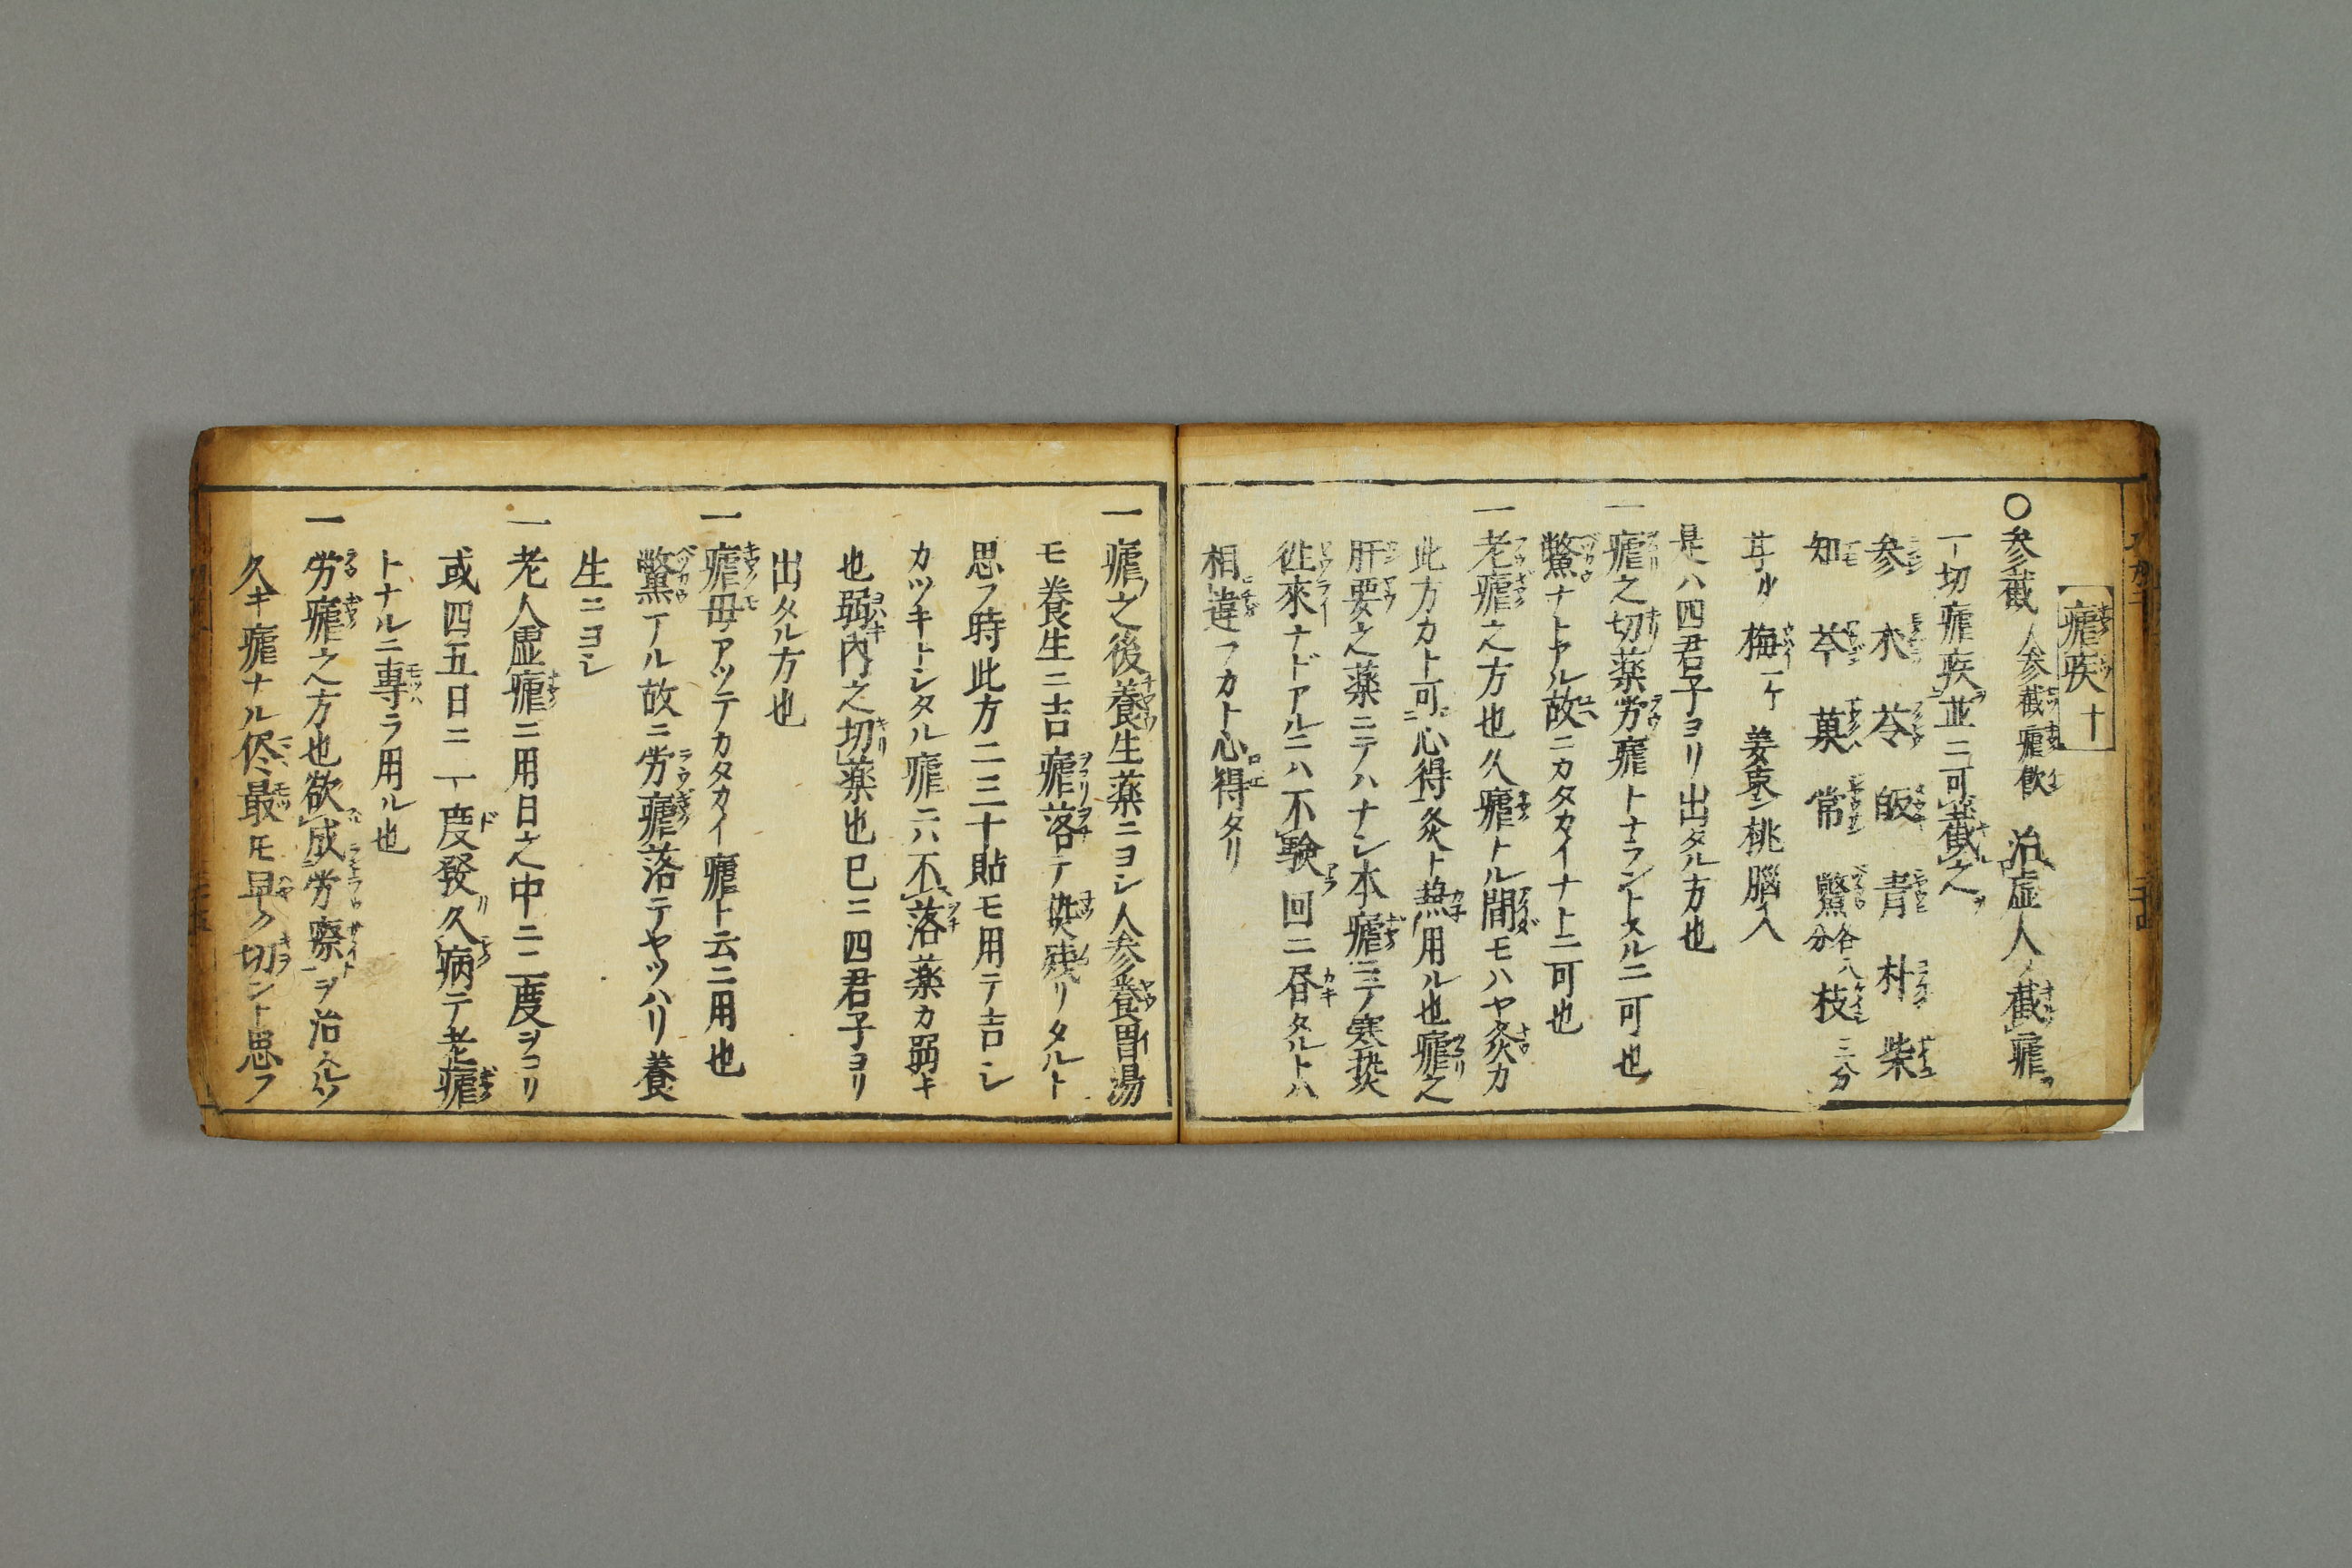 瘧疾 十
〇参截 人参截瘧飲 治虚人ノ截瘧ヲ
一切瘧疾ヲ並ニ可截之ヲ
参 朮 苓 皈 青 朴 柴
知 芩 菓 常 鱉 各八分 枝 三分
甘少 梅一ケ 姜 束シ 桃 脳入
是ハ四君子ヨリ出タル方也
一瘧之切薬労瘧トナラントスルニ可也
鱉ナトアル故ニカタカイナトニ可也
一老瘧之方也久瘧トル間モハヤ灸カ
此方カト可ニ心得灸ト熱用ル也瘧之
肝要之薬ニテハナシ本瘧ニテ寒热
往來ナドアルニハ不驗回ニ昼タルトハ
相違フカト心得タリ
一瘧ノ之後養生薬ニヨシ人参養胃湯
モ養生ニ吉瘧落テ热残リタルト
思フ時此方二三十貼モ用テ吉シ
カツキトシタル瘧ニハ不落薬カ弱キ
也弱キ内之切薬也巳ニ四君子ヨリ
出タル方也
一瘧母アツテカタカイ瘧ト云ニ用也
鱉アル故ニ労瘧落テヤツハリ養
生ニヨシ
一老人虚瘧ニ用日之中ニ二度ヲコリ
或四五日ニ一度發久病テ老瘧
トナルニ専ラ用ル也
一労瘧之方也欲成労瘵ヲ治スルソ
久キ瘧ナル侭最モ早ク切ント思フ